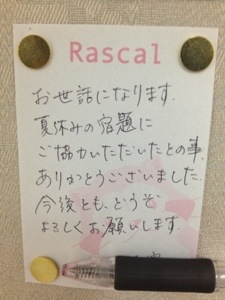 Rascal
お世話になります.
夏休みの宿題に
ご協力いただいたとの事.
ありがとうございました.
今後とも、どうぞ
よろしくお願いします.